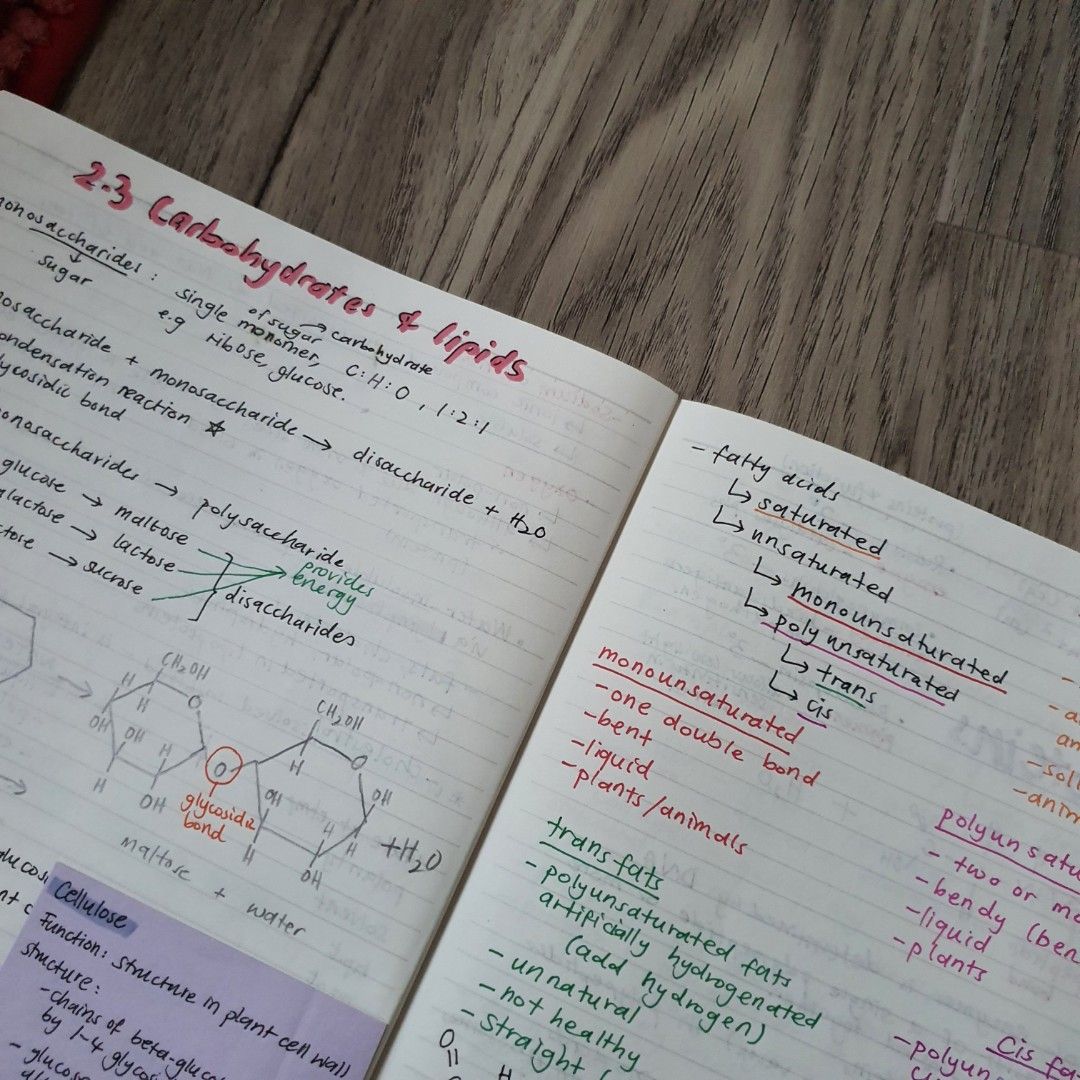 2.3 Carbohydrates & lipids
onosaccharides : single monomer, of sugar → carbohydrate
sugar
e.g ribose, glucose. C:H:O , 1:2:1
nosaccharide + monosaccharide → disaccharide + H2O
ondensation reaction ☆
lycosidic bond
onosaccharides → polysaccharide
glucose → maltose
alactose → lactose
ctose → sucrose
provides
energy
disaccharides
CH2OH
O
H
H
OH
OH
H
H
OH
O
glycosidic
bond
CH2OH
O
H
OH
OH
H
H
H
OH
+H2O
maltose + water
Cellulose
Function: structure in plant cell wall
structure:
- chains of beta-gluco
by 1-4 glycosi
- glucose
- fatty acids
↳ saturated
↳ unsaturated
↳ monounsaturated
↳ polyunsaturated
↳ trans
↳ cis
monounsaturated
- one double bond
- bent
- liquid
- plants/animals
trans fats
- polyunsaturated fats
artificially hydrogenated
(add hydrogen)
- unnatural
- not healthy
- straight (
O
H
- a
an
- soli
- anim
polyunsatu
- two or mo
- bendy (ben
- liquid
- plants
Cis fa
- polyun